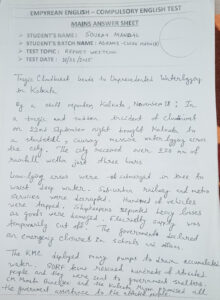 EMPYREAN ENGLISH – COMPULSORY ENGLISH TEST
MAINS ANSWER SHEET
STUDENT'S NAME: SOURAV MANDAL
STUDENT'S BATCH NAME:
TEST TOPIC: REPORT WRITING
TEST DATE:
Tragic Cloudburst leads to Unprecedented Waterlogging
in Kolkata
By a staff reporter, Kolkata, November 18: In
a tragic and sudden incident of cloudburst
on 22nd September night brought Kolkata to
a standstill, causing massive waterlogging across
the city. The city received over mm of
rainfall within just three hours.
Low-lying areas were submerged in knee to
waist deep water. Suburban railway and metro
services were disrupted. Hundreds of vehicles
were stranded. Shopkeepers reported heavy losses
as goods were damaged. Electricity supply was
temporarily cut off. The governments declared
an emergency closure in schools and offices.
The KMC deployed many pumps to drain accumulated
water. teams rescued hundreds of stranded
people and they were sent to government shelters.
CM Mamata Banerjee and the Kolkata Mayor all
the government assistance to the